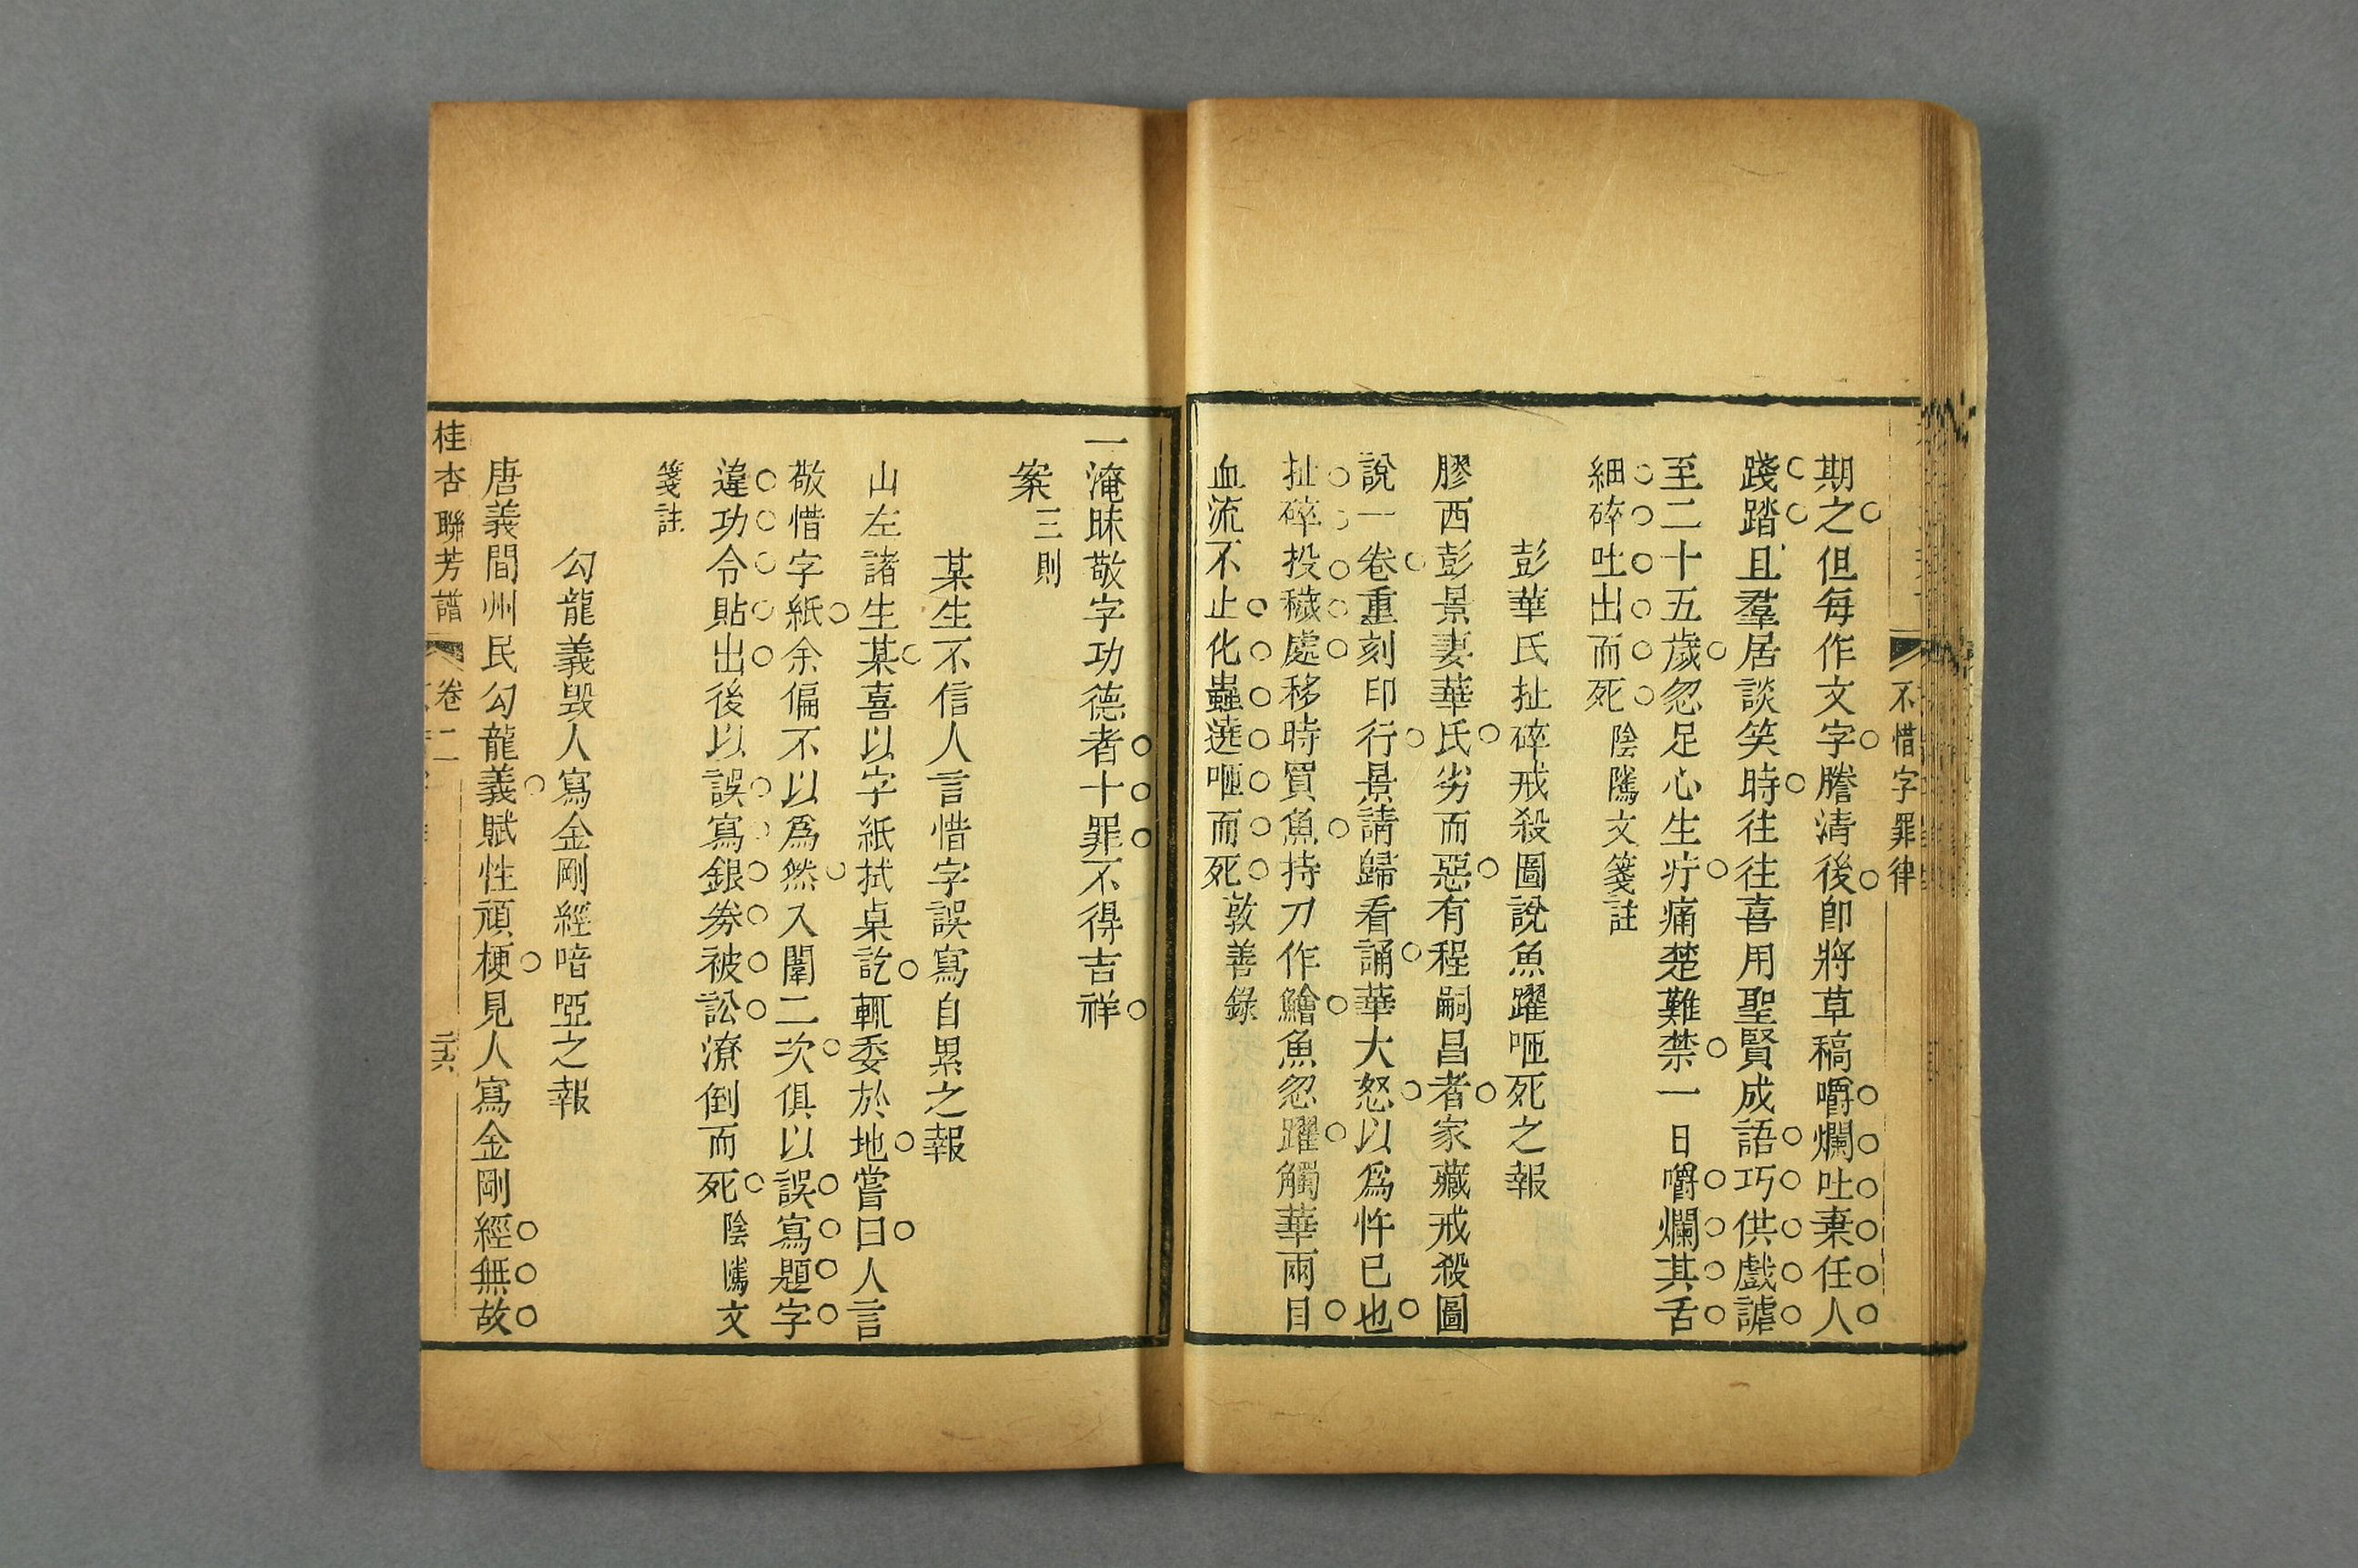 不惜字罪律
期之但每作文字謄清後卽將草稿嚼爛吐棄任人
踐踏且羣居談笑時往往喜用聖賢成語巧供戲謔
至二十五歲忽足心生疔痛楚難禁一日嚼爛其舌
細碎吐出而死陰隲文箋註
彭華氏扯碎戒殺圖說魚躍咂死之報
膠西彭景妻華氏劣而惡有程嗣昌者家藏戒殺圖
說一卷重刻印行景請歸看誦華大怒以爲忤已也
扯碎投穢處移時買魚持刀作鱠魚忽躍觸華兩目
血流不止化蟲遶咂而死敦善錄
一淹昧敬字功德者十罪不得吉祥
案三則
某生不信人言惜字誤寫自累之報
山左諸生某喜以字紙拭桌訖輒委於地嘗曰人言
敬惜字紙余偏不以爲然入闈二次俱以誤寫題字
違功令貼出後以誤寫銀劵被訟潦倒而死陰隲文
箋註
勾龍義毀人寫金剛經喑啞之報
唐義間州民勾龍義賦性頑梗見人寫金剛經無故
桂杏聯芳譜 卷二